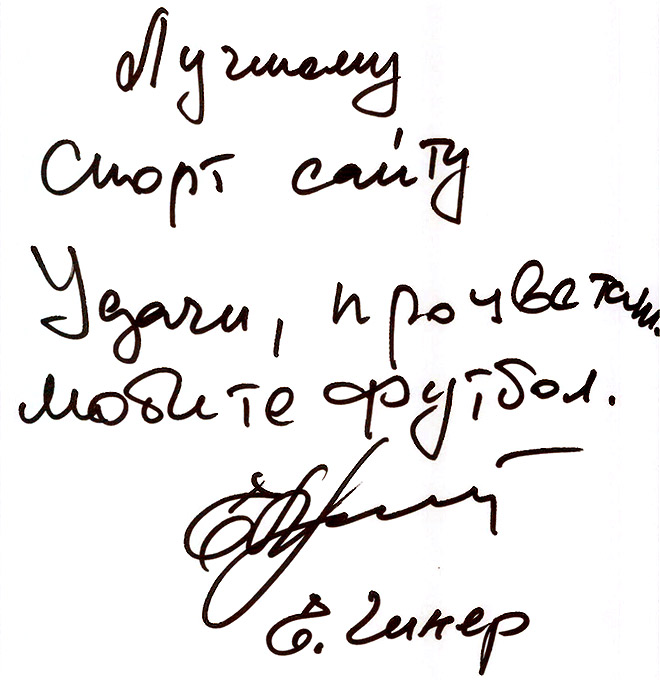 Лучшему
Спорт сайту
Удачи, процветан.
Любите футбол.
Е. Гинер